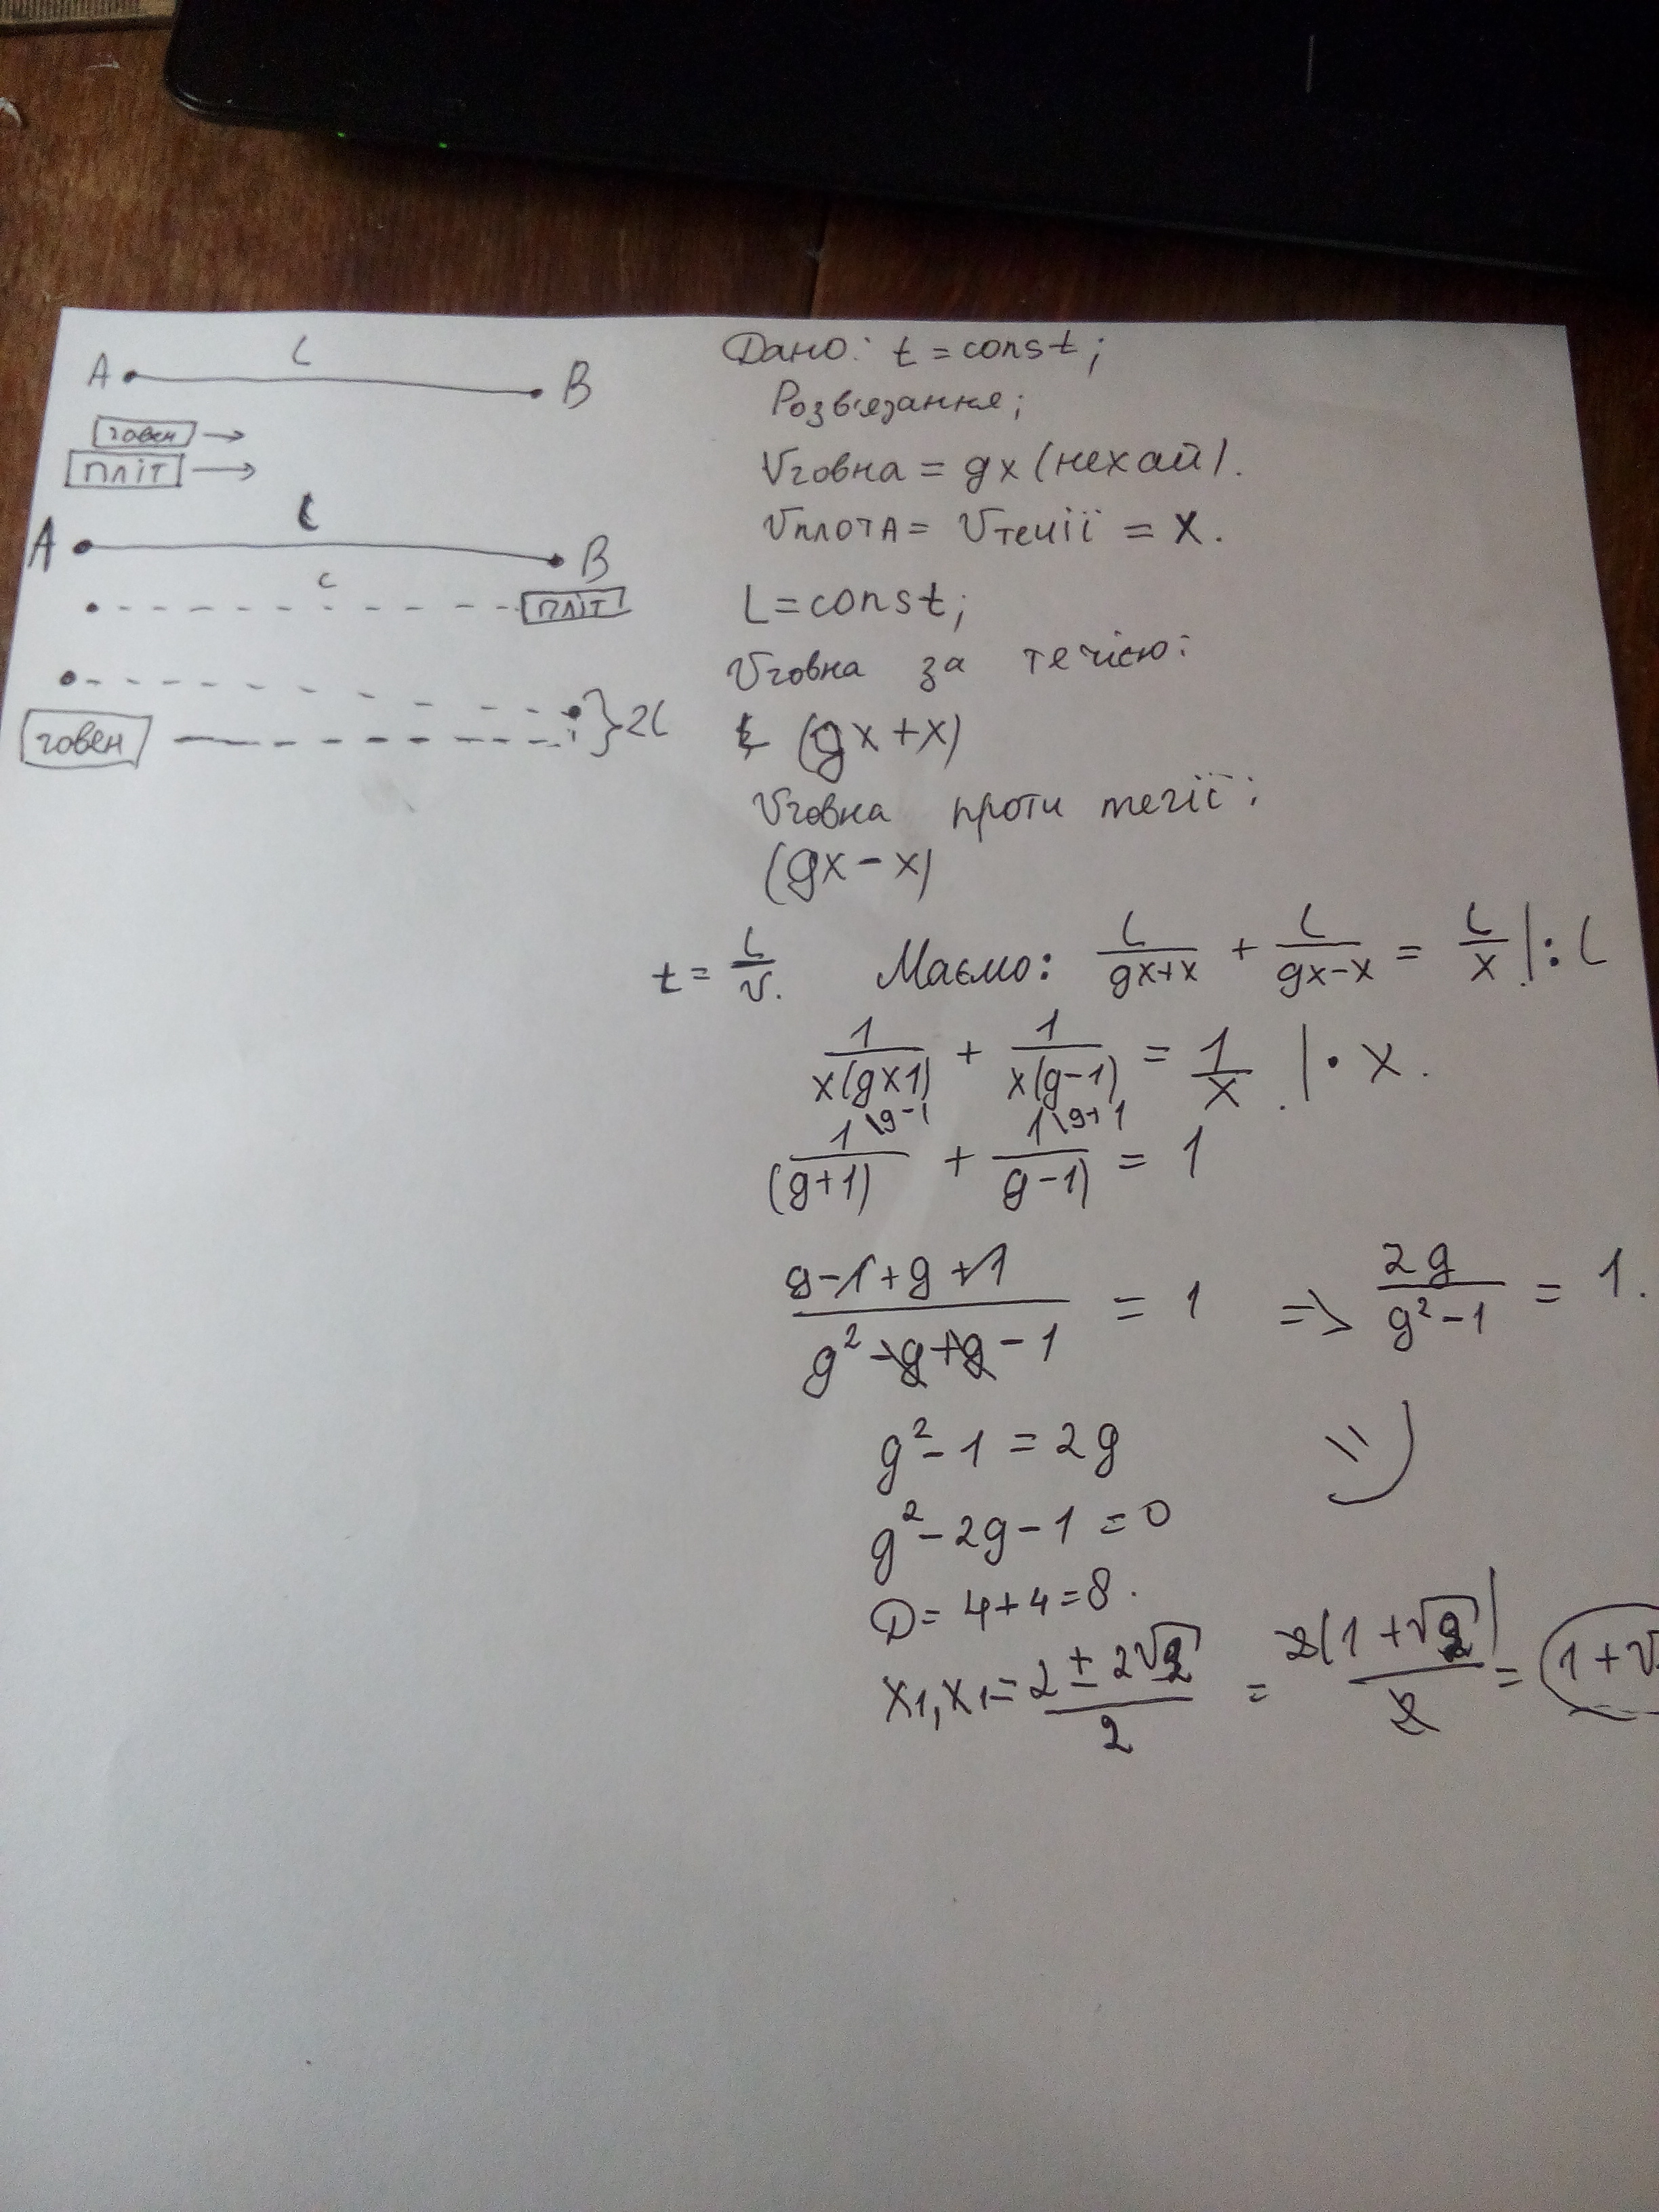 A L B
човен →
пліт →
A L B
L
пліт
човен } 2L
Дано: t = const;
Розв'язання;
Vчовна = gx (нехай).
Vплота = Vтечії = x.
L = const;
Vчовна за течією:
(gx + x)
Vчовна проти течії:
(gx - x)
t = L/V. Маємо: L/(gx+x) + L/(gx-x) = L/x. | : L
1/(x(g×1)) + 1/(x(g-1)) = 1/x. | · x.
1\g-1/(g+1) + 1\g+1/(g-1) = 1
(g-1+g+1)/(g²-g+g-1) = 1 => 2g/(g²-1) = 1.
g² - 1 = 2g
g² - 2g - 1 = 0
D = 4 + 4 = 8.
x1, x1 = (2 ± 2√2)/2 = 2(1+√2)/2 = 1 + √